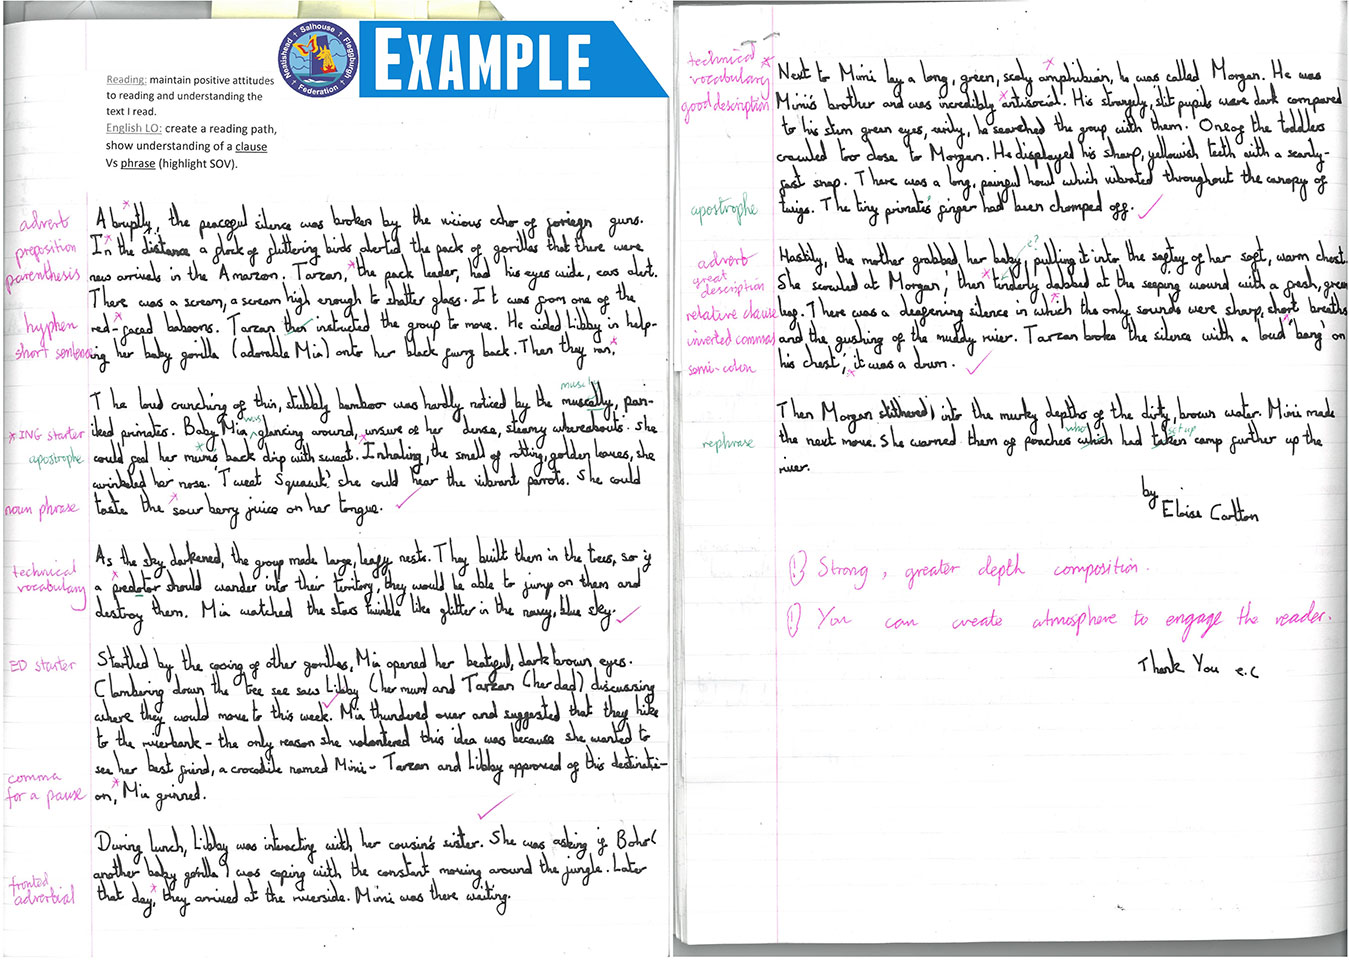 Neatishead † Salhouse † Fleggburgh † Federation †
EXAMPLE
Reading: maintain positive attitudes
to reading and understanding the
text I read.
English LO: create a reading path,
show understanding of a clause
Vs phrase (highlight SOV).
adverb
preposition
parenthesis
hyphen
short sentence
Abruptly, the peaceful silence was broken by the vicious echo of foriegn guns.
In the distance a flock of fluttering birds alerted the pack of gorillas that there were
new arrivals in the Amarzon. Tarzan, the pack leader, had his eyes wide, ears alert.
There was a scream, a scream high enough to shatter glass. It was from one of the
red-faced baboons. Tarzan then instructed the group to move. He aided Libby in help-
ing her baby gorilla (adorable Mia) onto her black furry back. Then they ran.
muscly
The loud crunching of thin, stubbly bamboo was hardly noticed by the muscally, pan-
icked primates. Baby Mia was glancing around, unsure of her dense, steamy whereabouts. She
could feel her mums' back drip with sweat. Inhaling, the smell of rotting, golden leaves, she
wrinkled her nose. 'Tweet Squawk' she could hear the vibrant parrots. She could
taste the sour berry juice on her tongue.
*ING starter
apostrophe
noun phrase
As the sky darkened, the group made large, leafy nests. They built them in the trees, so if
a predator should wander into their territory, they would be able to jump on them and
destroy them. Mia watched the stars twinkle like glitter in the navy, blue sky.
technical
vocabulary
ED starter
Startled by the cooing of other gorillas, Mia opened her beatiful, dark brown, eyes.
Clambering down the tree see saw Libby (her mum) and Tarzan (her dad) discussing
where they would move to this week. Mia thundered over and suggested that they hike
to the riverbank - the only reason she volontered this idea was because she wanted to
see her best friend, a crocodile named Mimi - Tarzan and Libby approved of this destinati-
on, Mia grinned.
comma
for a pause
During lunch, Libby was interacting with her cousin's sister. She was asking if Boho (
another baby gorilla) was coping with the constant moving around the jungle. Later
that day, they arrived at the riverside. Mimi was there waiting.
fronted
adverbial
technical
vocabulary
good description
Next to Mimi lay a long, green, scaly amphibian, he was called Morgan. He was
Mimi's brother and was incredibly antisocial. His strangely, slit pupils were dark compared
to his stern green eyes, eerily, he searched the group with them. One of the toddlers
crawled too close to Morgan. He displayed his sharp, yellowish teeth with a scarily-
fast snap. There was a long, painful howl which vibrated throughout the canopy of
twigs. The tiny primate's finger had been chomped off.
apostrophe
adverb
great
description
relative clause
inverted commas
semi-colon
c?
Hastily, the mother grabbed her baby, pulling it into the saftey of her soft, warm chest.
She scrowled at Morgan, then tinderly dabbed at the seeping wound with a fresh, green
leg. There was a deafening silence in which the only sounds were sharp, short breaths
and the gushing of the muddy river. Tarzan broke the silence with a loud 'bang' on
his chest; it was a drum.
Then Morgan slithered, into the murky depths of the dirty, brown water. Mimi made
who set up
the next move. She warned them of poachers which had taken camp further up the
river.
rephrase
by
Eloise Carlton
Strong, greater depth composition.
You can create atmosphere to engage the reader.
Thank You e.c